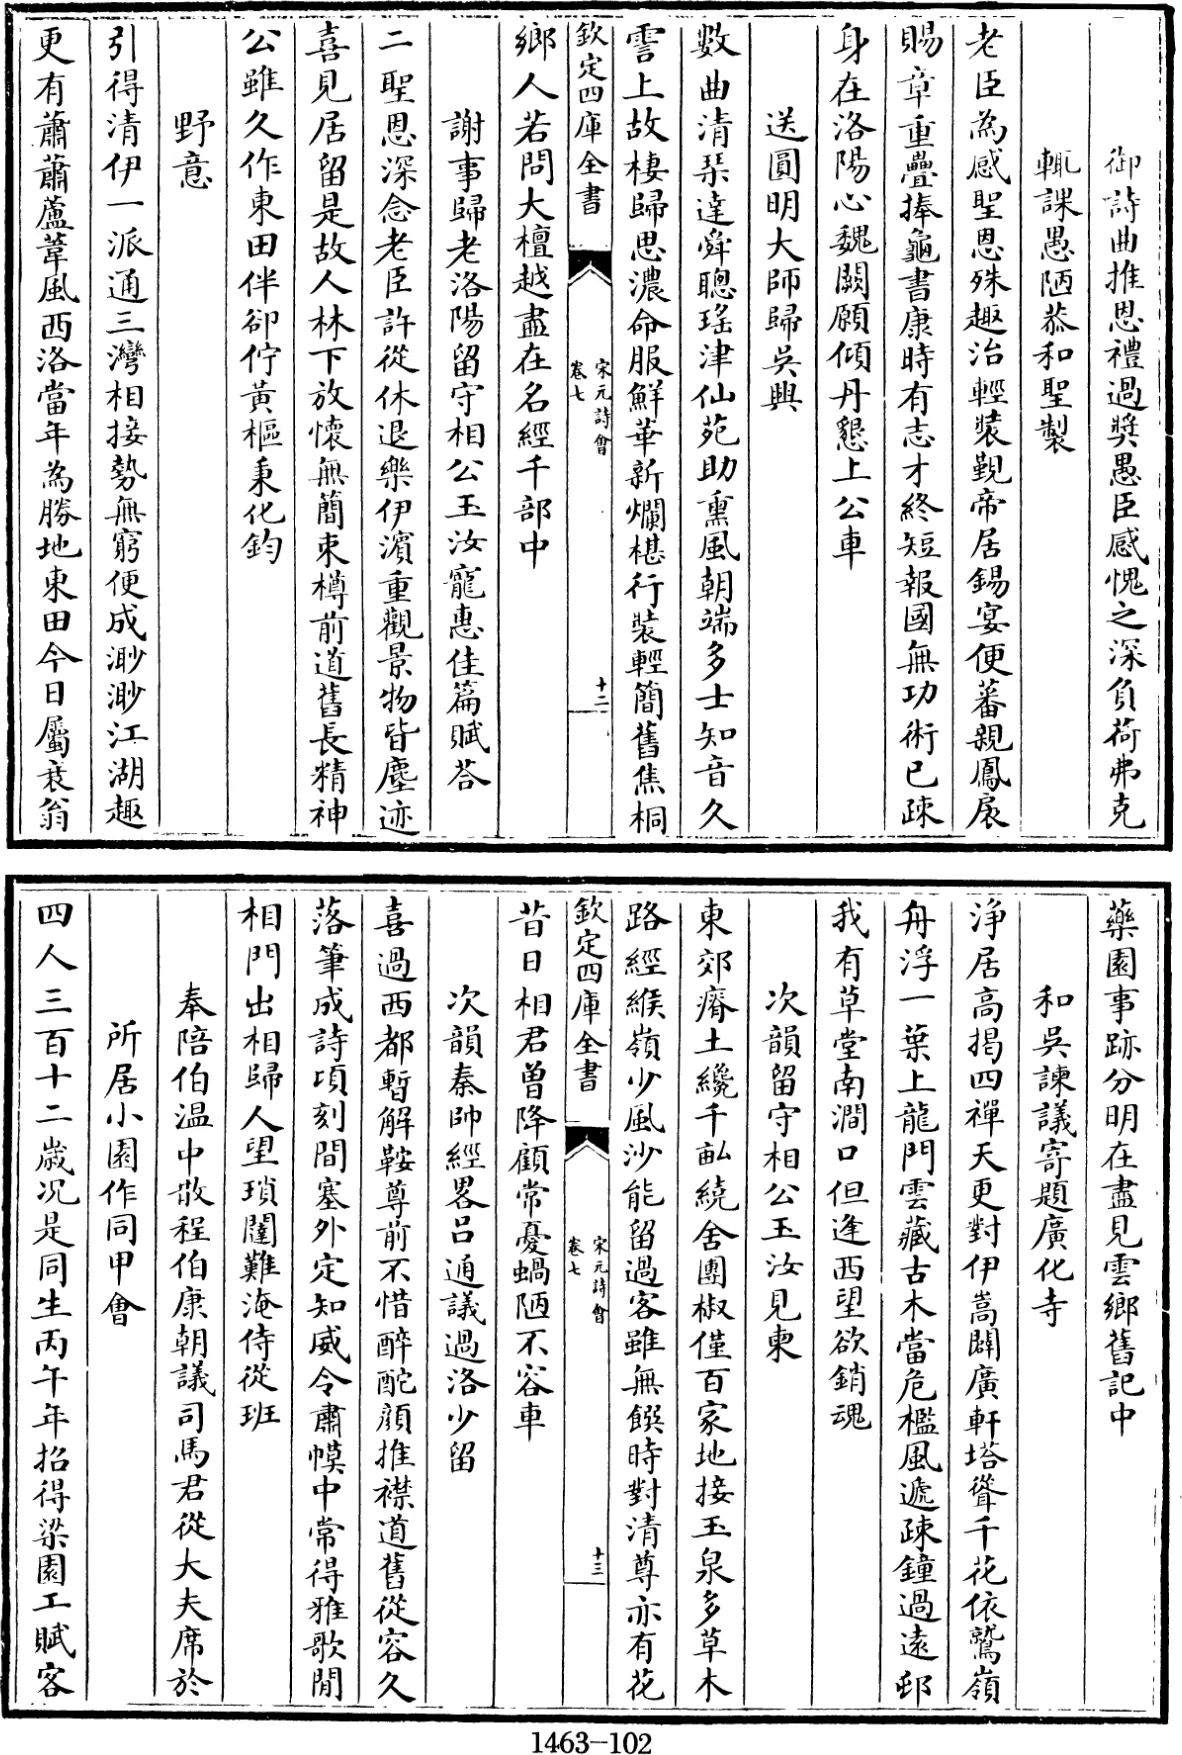 御詩曲推恩禮過奬愚臣感愧之深負荷弗克
輒課愚陋恭和聖製
老臣為感聖恩殊趣治輕裝覲帝居錫宴便蕃親鳳扆
賜章重疊捧龜書康時有志才終短報國無功術已疎
身在洛陽心魏闕願傾丹懇上公車
送圓明大師歸吳興
數曲清琴達舜聰瑤津仙苑助熏風朝端多士知音久
霅上故棲歸思濃命服鮮華新爛椹行裝輕簡舊焦桐
欽定四庫全書
宋元詩會
卷七
十二
鄉人若問大檀越盡在名經千部中
謝事歸老洛陽留守相公玉汝寵惠佳篇賦荅
二聖恩深念老臣許從休退樂伊濱重觀景物皆塵迹
喜見居留是故人林下放懷無簡束樽前道舊長精神
公雖久作東田伴卻佇黃樞秉化鈞
野意
引得清伊一派通三灣相接勢無窮便成渺渺江湖趣
更有蕭蕭蘆葦風西洛當年為勝地東田今日屬衰翁
藥園事跡分明在盡見雲鄉舊記中
和吳諫議寄題廣化寺
淨居高揭四禪天更對伊嵩闢廣軒塔聳千花依鷲嶺
舟浮一葉上龍門雲藏古木當危檻風遞疎鐘過遠邨
我有草堂南澗口但逢西望欲銷魂
次韻留守相公玉汝見柬
東郊瘠土纔千畝繞舍團椒僅百家地接玉泉多草木
路經緱嶺少風沙能留過客雖無饌時對清尊亦有花
欽定四庫全書
宋元詩會
卷七
十三
昔日相君曽降顧常憂蝸陋不容車
次韻秦帥經畧吕通議過洛少留
喜過西都暫解鞍尊前不惜醉酡顔推襟道舊從容久
落筆成詩頃刻間塞外定知威令肅幙中常得雅歌閒
相門出相歸人望瑣闥難淹侍從班
奉陪伯温中散程伯康朝議司馬君從大夫席於
所居小園作同甲會
四人三百十二歳況是同生丙午年招得梁園工賦客
1463-102